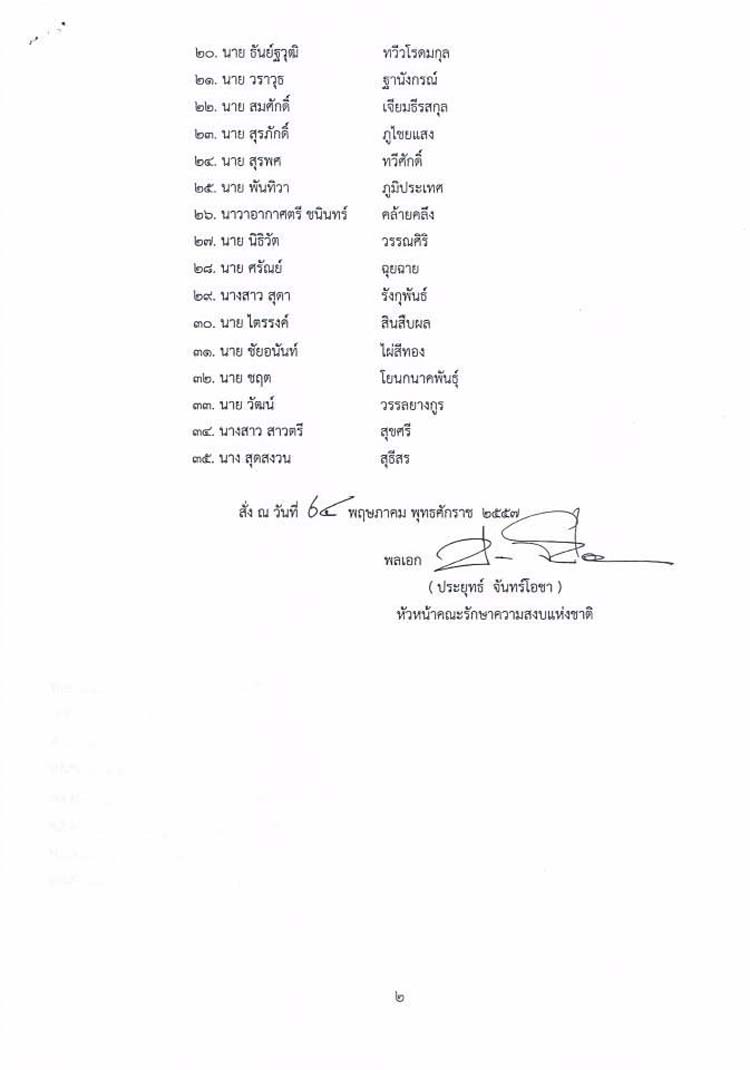 ๒๐. นาย ธันย์ฐวุฒิ ทวีวโรดมกุล
๒๑. นาย วราวุธ ฐานังกรณ์
๒๒. นาย สมศักดิ์ เจียมธีรสกุล
๒๓. นาย สุรภักดิ์ ภูไชยแสง
๒๔. นาย สุรพศ ทวีศักดิ์
๒๕. นาย พันทิวา ภูมิประเทศ
๒๖. นาวาอากาศตรี ชนินทร์ คล้ายคลึง
๒๗. นาย นิธิวัต วรรณศิริ
๒๘. นาย ศรัณย์ ฉุยฉาย
๒๙. นางสาว สุดา รังกุพันธ์
๓๐. นาย ไตรรงค์ สินสืบผล
๓๑. นาย ชัยอนันท์ ไผ่สีทอง
๓๒. นาย ชฤต โยนกนาคพันธุ์
๓๓. นาย วัฒน์ วรรลยางกูร
๓๔. นางสาว สาวตรี สุขศรี
๓๕. นาง สุดสงวน สุธีสร
สั่ง ณ วันที่ ๒๔ พฤษภาคม พุทธศักราช ๒๕๕๗
พลเอก
( ประยุทธ์ จันทร์โอชา )
หัวหน้าคณะรักษาความสงบแห่งชาติ
๒